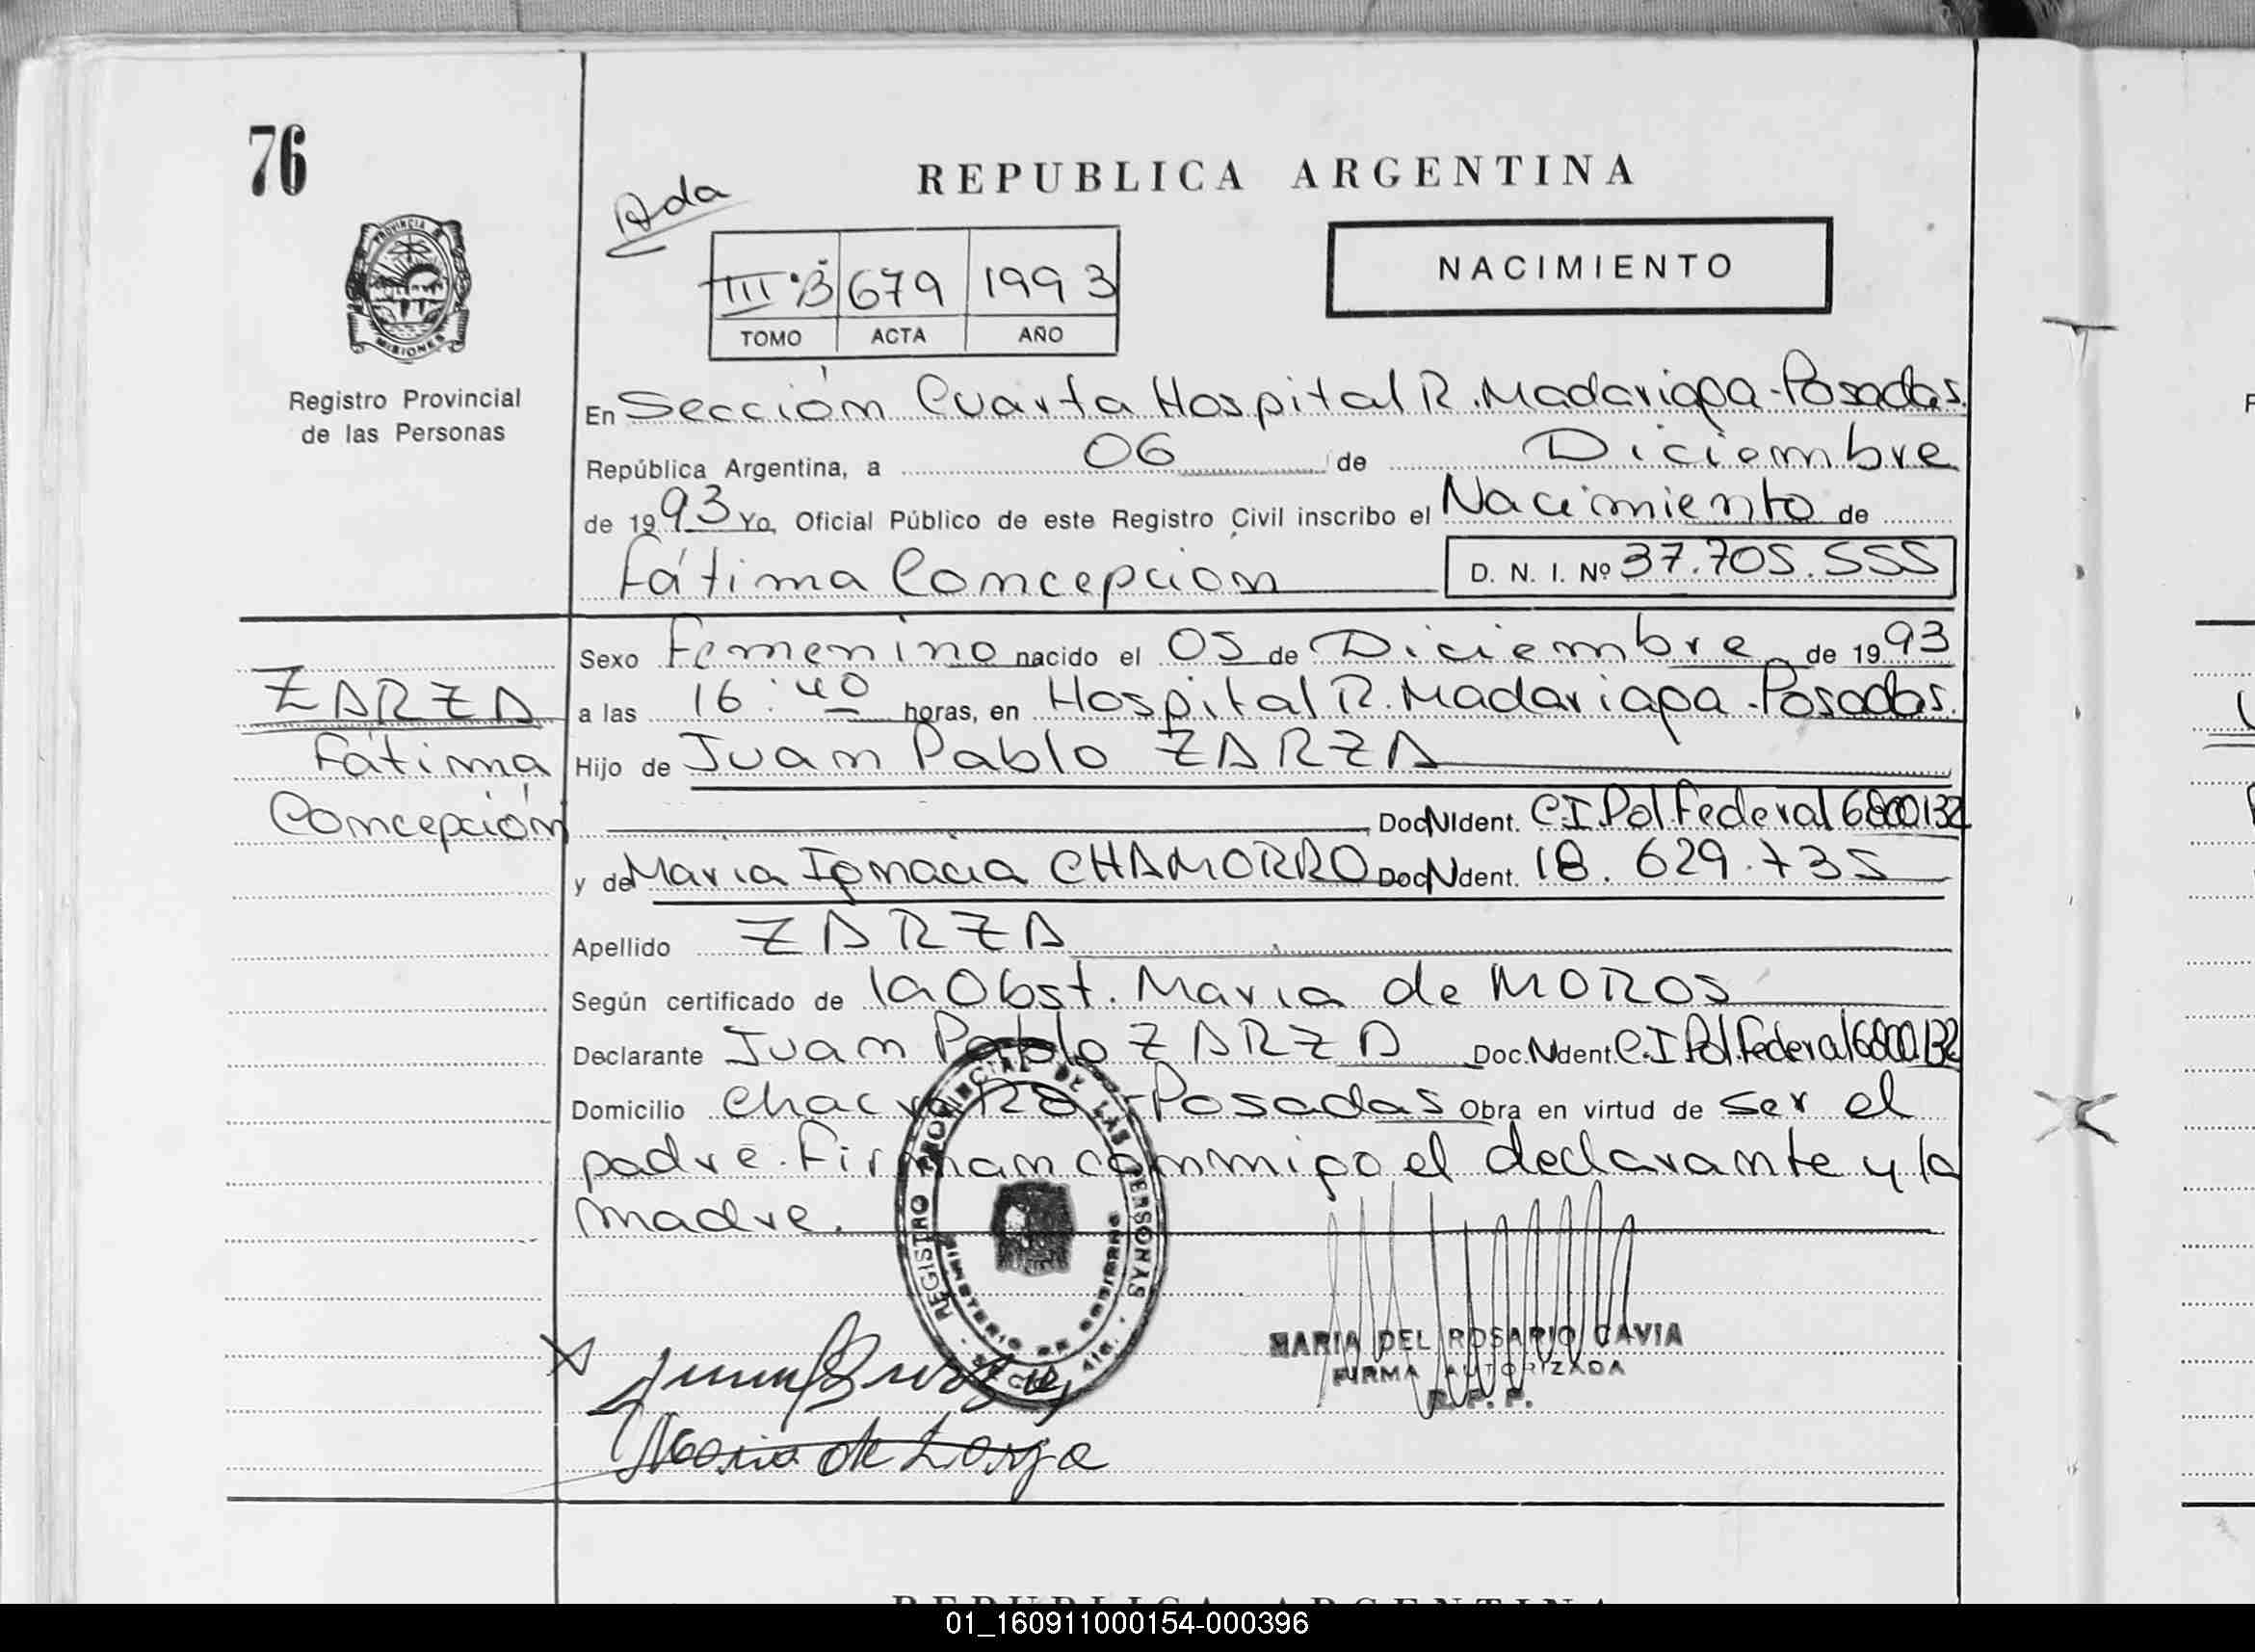 76
Ada
REPUBLICA ARGENTINA
NACIMIENTO
III·B 679 1993
TOMO ACTA AÑO
PROVINCIA DE
MISIONES
Registro Provincial
de las Personas
En Sección Cuarta Hospital R. Madariaga-Posadas.
República Argentina, a 06 de Diciembre
de 1993 Yo, Oficial Público de este Registro Civil inscribo el Nacimiento de
Fátima Concepción D. N. I. Nº 37.705.555
Sexo Femenino nacido el 05 de Diciembre de 1993
ZARZA
Fátima
Concepción
a las 16:40 horas, en Hospital R. Madariaga-Posadas.
Hijo de Juan Pablo ZARZA
Doc. Ident. C.I. Pol. Federal 6800132
y de Maria Ignacia CHAMORRO Doc. Ident. 18.629.735
Apellido ZARZA
Según certificado de la Obst. Maria de MOROS
Declarante Juan Pablo ZARZA Doc. Ident. C.I. Pol. Federal 6800132
Domicilio Posadas Obra en virtud de ser el
padre. Firman conmigo el declarante y la
madre.
REGISTRO PROVINCIAL DE LAS PERSONAS
MINISTERIO DE GOBIERNO
MARIA DEL ROSARIO CAVIA
FIRMA AUTORIZADA
R. P. P.
Maria de Zarza
REPUBLICA ARGENTINA
01_160911000154-000396